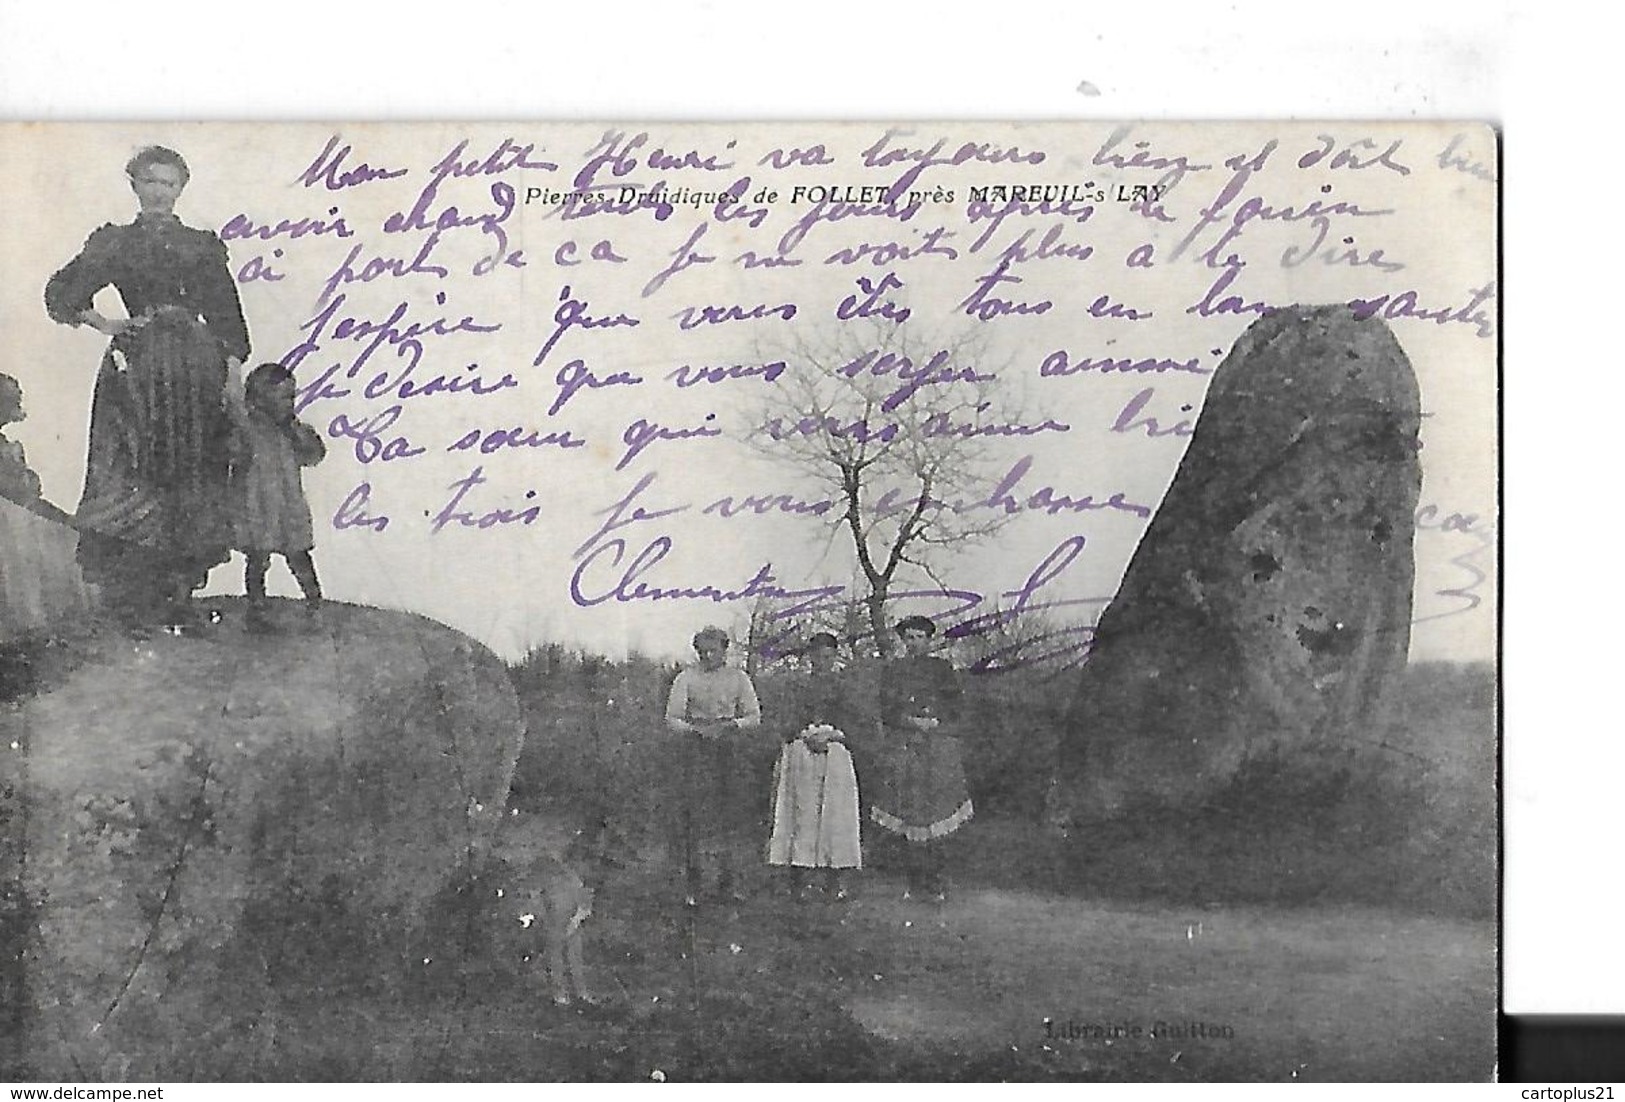 Mon petit Henri va toujours bien il doit bien
Pierres Druidiques de FOLLET, près MAREUIL-s/LAY
avoir chaud tous les jours après le fouin
a part de ca je ne voit plus a te dire
J'espère que vous êtes tous en bonne santé
je desire que vous serger ainssi
Ta sœur qui vous aime bien
les trois je vous embrasse
Clementine
Librairie Guitton
cartoplus21